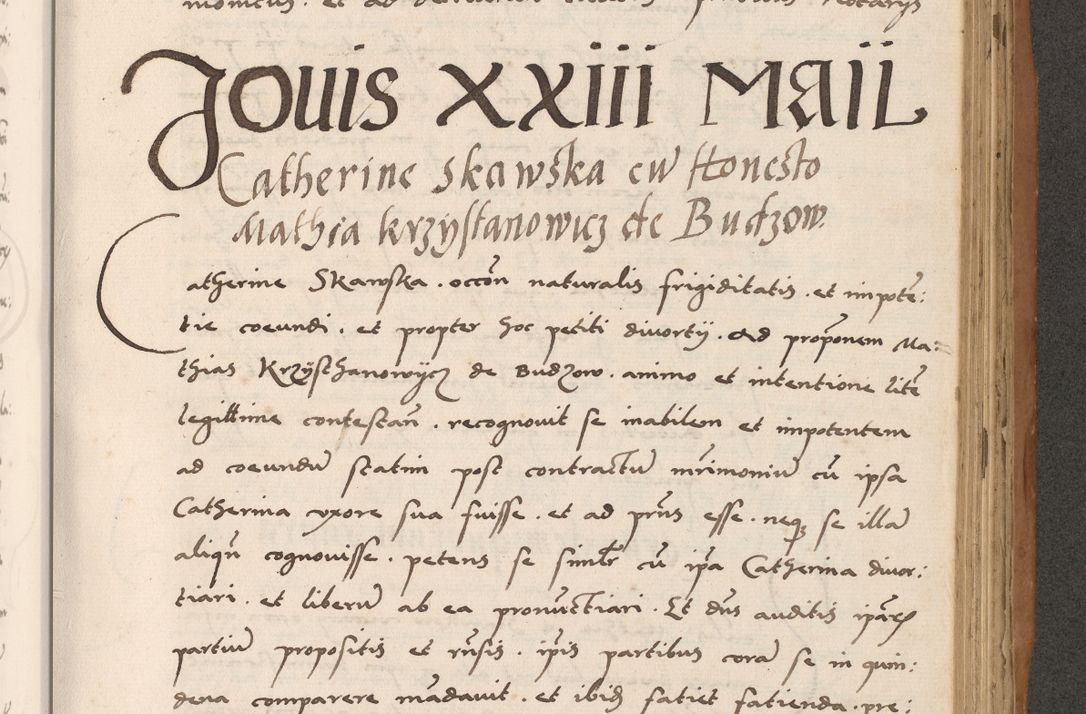 Jouis XXIII Maii
Catherine Skawska cū Honesto
Mathia Krzystanowicz de Budzow.
Catherine Skawska . occōn naturalis frigiditatis . et impotē:
tie coeundi . et propter hoc petiti divortij . Ad propōnem Ma:
thias Krzÿsthanowÿcz de Budzow . animo et intentione litē
legittime contestan̄ . recognouit se inabilem et impotentem
ad coeundū statim post contractū mr̄imoniū cū ipsa
Catherina vxore sua fuisse . et ad prn̄s esse . neqȝ se illā
aliqn̄ cognouisse . petens se simlr̄ cū ip̄a Catherina diuor:
tiari . et liberū ab ea pronūctiari . Et dn̄s auditis ip̄arꝝ
partiū propositis et rn̄sis . ip̄is partibus corā se in quin:
dena comparere mādauit . et ibidȝ fatiet fatienda . pre: